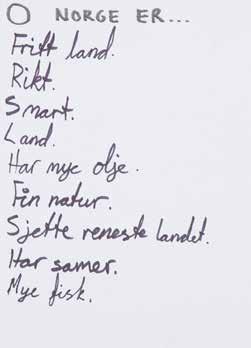 O NORGE ER...
Fritt land.
Rikt.
Smart.
Land.
Har mye olje.
Fin natur.
Sjette reneste landet.
Har samer.
Mye fisk.